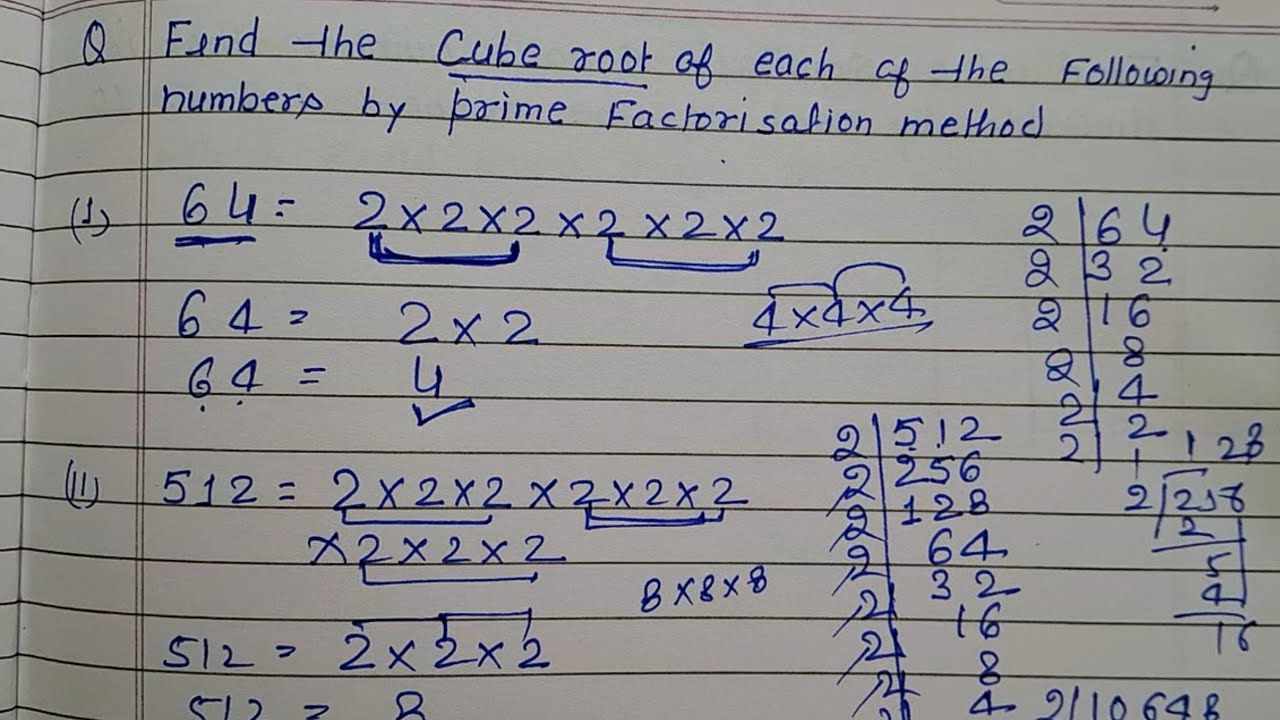 Q Find the Cube root of each of the Following
numbers by prime Factorisation method
(I) 64 = 2×2×2×2×2×2
64 = 2×2
4×4×4
64 = 4
2 | 64
2 | 32
2 | 16
2 | 8
2 | 4
2 | 2
1
(II) 512 = 2×2×2×2×2×2
×2×2×2
8×8×8
512 = 2×2×2
512 = 8
2 | 512
2 | 256
2 | 128
2 | 64
2 | 32
2 | 16
2 | 8
2 | 4
128
2
2
5
4
16
2 | 10648